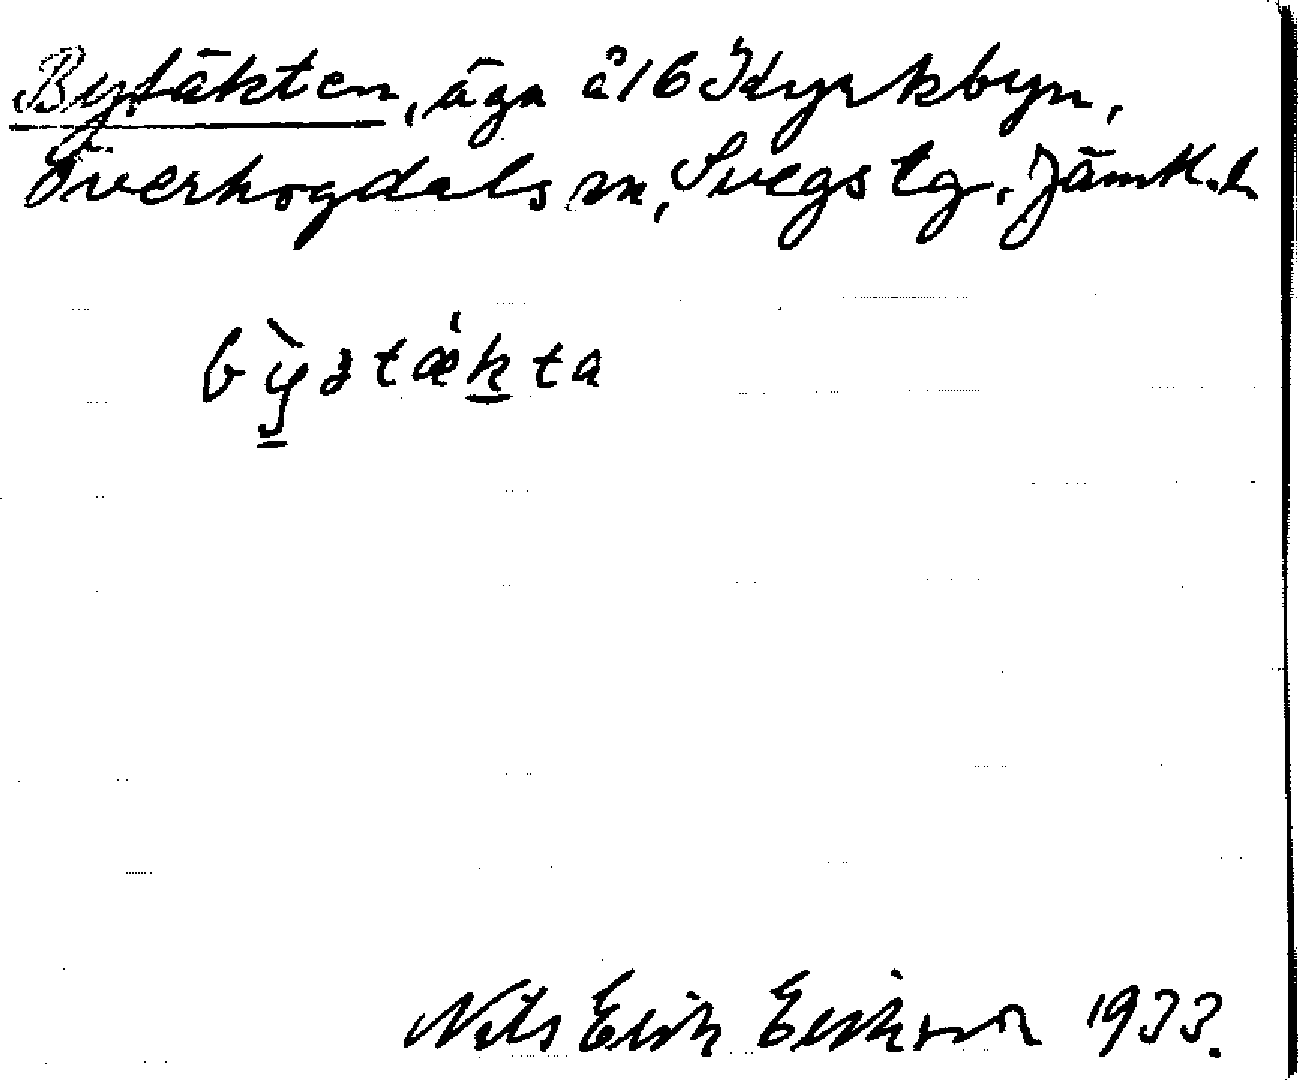 Bytäkten, äga å 16 Kyrkbyn,
Överhogdals sn, Svegs tg. Jämtl. l.
bỳstækta
Nils Erik Eriksson 1933.